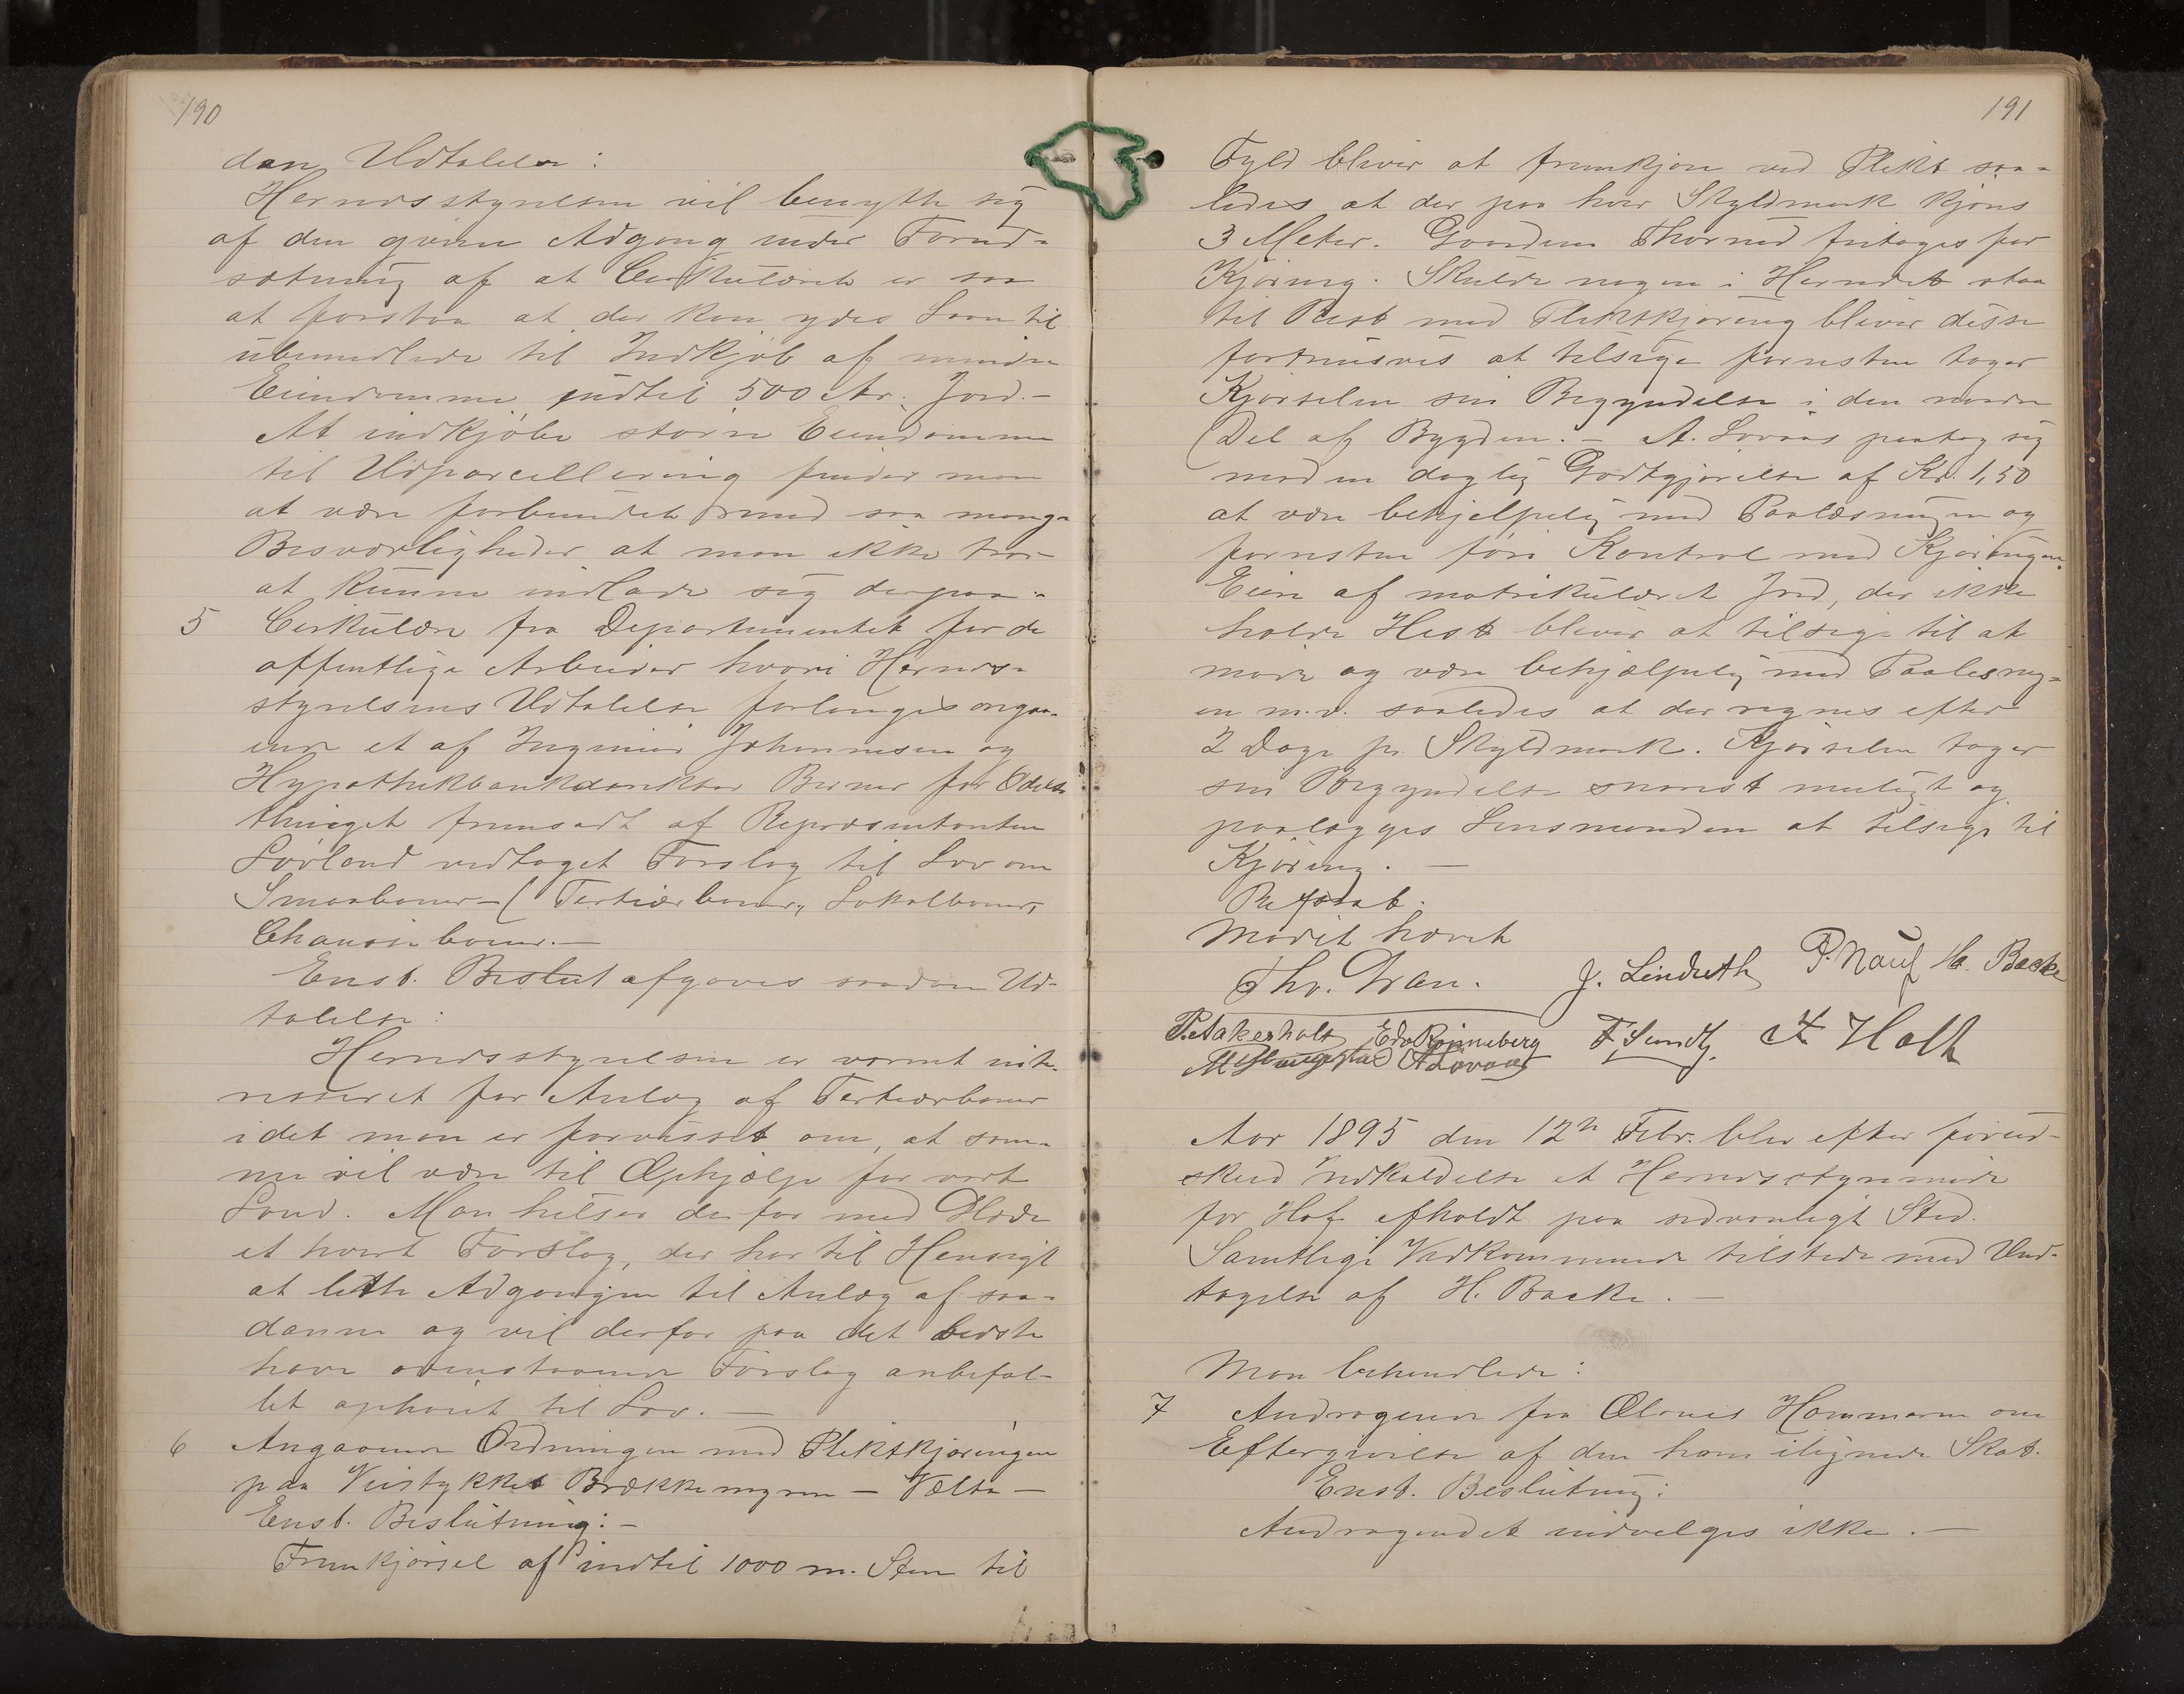 190
dan Udtalelse:
Herredsstyrelsen vil benytte sig
af den givne Adgang under Forud-
sætning af at Cirkulæret er saa
at forstaa at der kan ydes Laan til
ubemidlede til Indkjøb af mindre
Eiendomme indtil 500 Ar. Jord.-
At indkjøbe større Eiendomme
til Udparcellering finder man
at være forbundet med saa mange
Besværligheder at man ikke tror
at kunne indlade sig derpaa.-
5 Cirkulære fra Departementet for de
offentlige Arbeider hvori Herreds-
styrelsens Udtalelse forlanges angaa-
ende et af Ingeniør Johannesen og
Hypothekbankdirektør Berner for Odels
thinget fremsadt af Repræsentanten
Løvland vedtaget Forslag til Lov om
Smaabaner- (Tertiærbaner, Lokalbaner,
Chausebaner.-
Enst. Beslut afgaves saadan Ud-
talelse:
Herredsstyrelsen er varmt inte-
resseret for Anlæg af Tertiærbaner
idet man er forvisset om, at sam-
me vil være til Ophjælp for vort
Land. Man hilser derfor med Glæde
et hvert Forslag, der har til Hensigt
at lette Adgangen til Anlæg af saa-
danne og vil derfor paa det bedste
have ovenstaaende Forslag anbefal-
let ophøiet til Lov.-
6 Angaaende Ordningen med Pliktkjøringen
paa Veistykket Brækkemyren - Vælta -
Enst. Beslutning:-
Fremkjørsel af indtil 1000 m. Sten til
191
Fyld bliver at fremkjøre ved Plikt saa-
ledes at der paa hver Skyldmark kjøres
3 Meter. Gaarden Thorrud fritages for
Kjøring. Skulde nogen i Herredet staa
til Rest med Pliktkjøring bliver disse
fortrinsvis at tilsige forresten tager
Kjørselen sin Begyndelse i den nordre
Del af Bygden.- A. Løvaas paatog sig
mod en daglig Godtgjørelse af Kr. 1,50
at være behjelpelig med Paalæsningen og
forresten føre Kontrol med Kjøringen.
Eiere af matrikuleret Jord, der ikke
holder Hest bliver at tilsige til at
møde og være behjælpelig med Paalesning-
en m.v. saaledes at der regnes efter
2 Dage pr Skyldmark. Kjørselen tager
sin Begyndelse snarest muligt og
paalægges Lensmanden at tilsige til
Kjøring.-
Ref
Mødet hævet
Thv. Gran. J. Lindseth P. Nauf H. Backe
P. Aakerholt Edv Rønneberg F. Sundby. A Holt
M Haugestad A Løvaas
Aar 1895 den 12te Febr. blev efter forud-
skeed Indkaldelse et Herredsstyremøde
for Hof afholdt paa sedvanligt Sted.
Samtlige Vedkommende tilstede med Und-
tagelse af H. Backe.-
Man behandlede:
7 Andragende fra Hammeren om
Eftergivelse af den ham ilignede Skat.
Enst. Beslutning:
Andragendet indvilges ikke.-